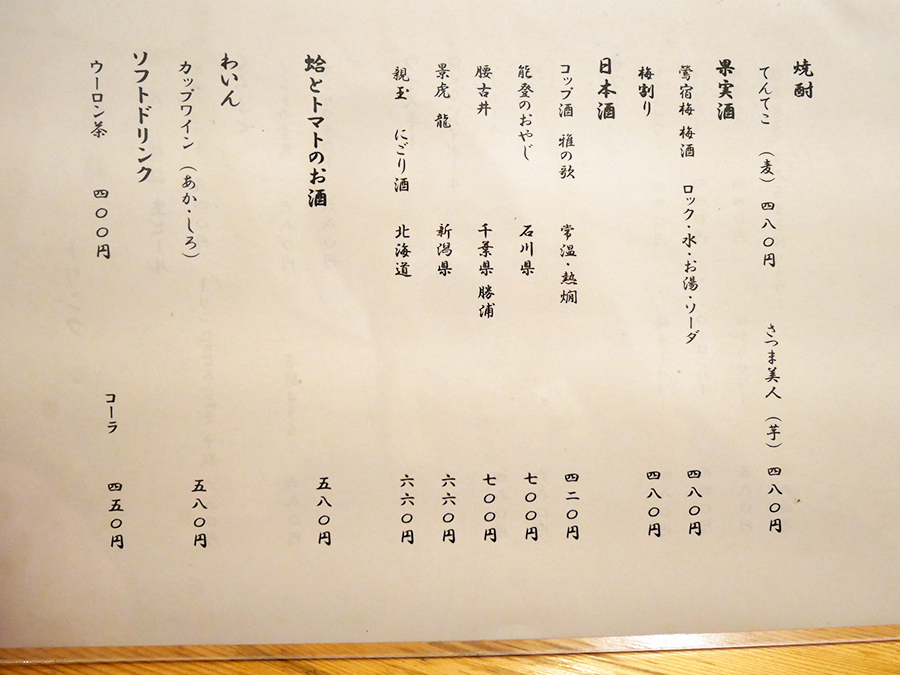 焼酎
てんてこ （麦）四八〇円 さつま美人（芋）四八〇円
果実酒
鶯宿梅 梅酒 ロック・水・お湯・ソーダ 四八〇円
梅割り 四八〇円
日本酒
コップ酒 雅の歌 常温・熱燗 四二〇円
能登のおやじ 石川県 七〇〇円
腰古井 千葉県 勝浦 七〇〇円
景虎 龍 新潟県 六六〇円
親玉 にごり酒 北海道 六六〇円
蛤とトマトのお酒 五八〇円
わいん
カップワイン（あか・しろ） 五八〇円
ソフトドリンク
ウーロン茶 四〇〇円 コーラ 四五〇円